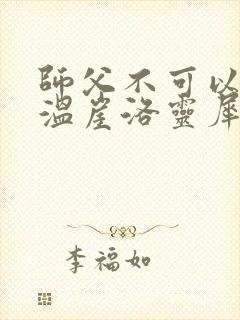 師父不可以
溫崖洛靈犀
李福如